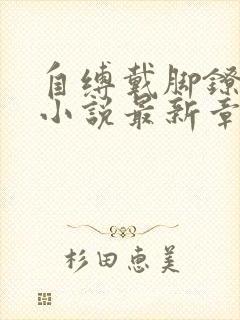 自缚戴脚镣
小说最新章
杉田惠美